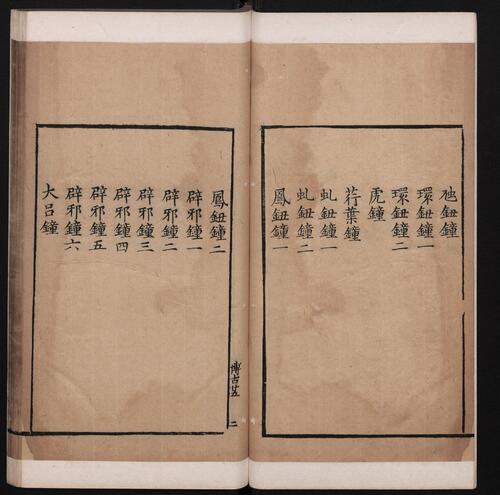 虵鈕鐘
環鈕鐘一
環鈕鐘二
虎鐘
荇葉鐘
虬鈕鐘一
虬鈕鐘二
鳳鈕鐘一
鳳鈕鐘二
辟邪鐘一
辟邪鐘二
辟邪鐘三
辟邪鐘四
辟邪鐘五
辟邪鐘六
大呂鐘
博古五
二